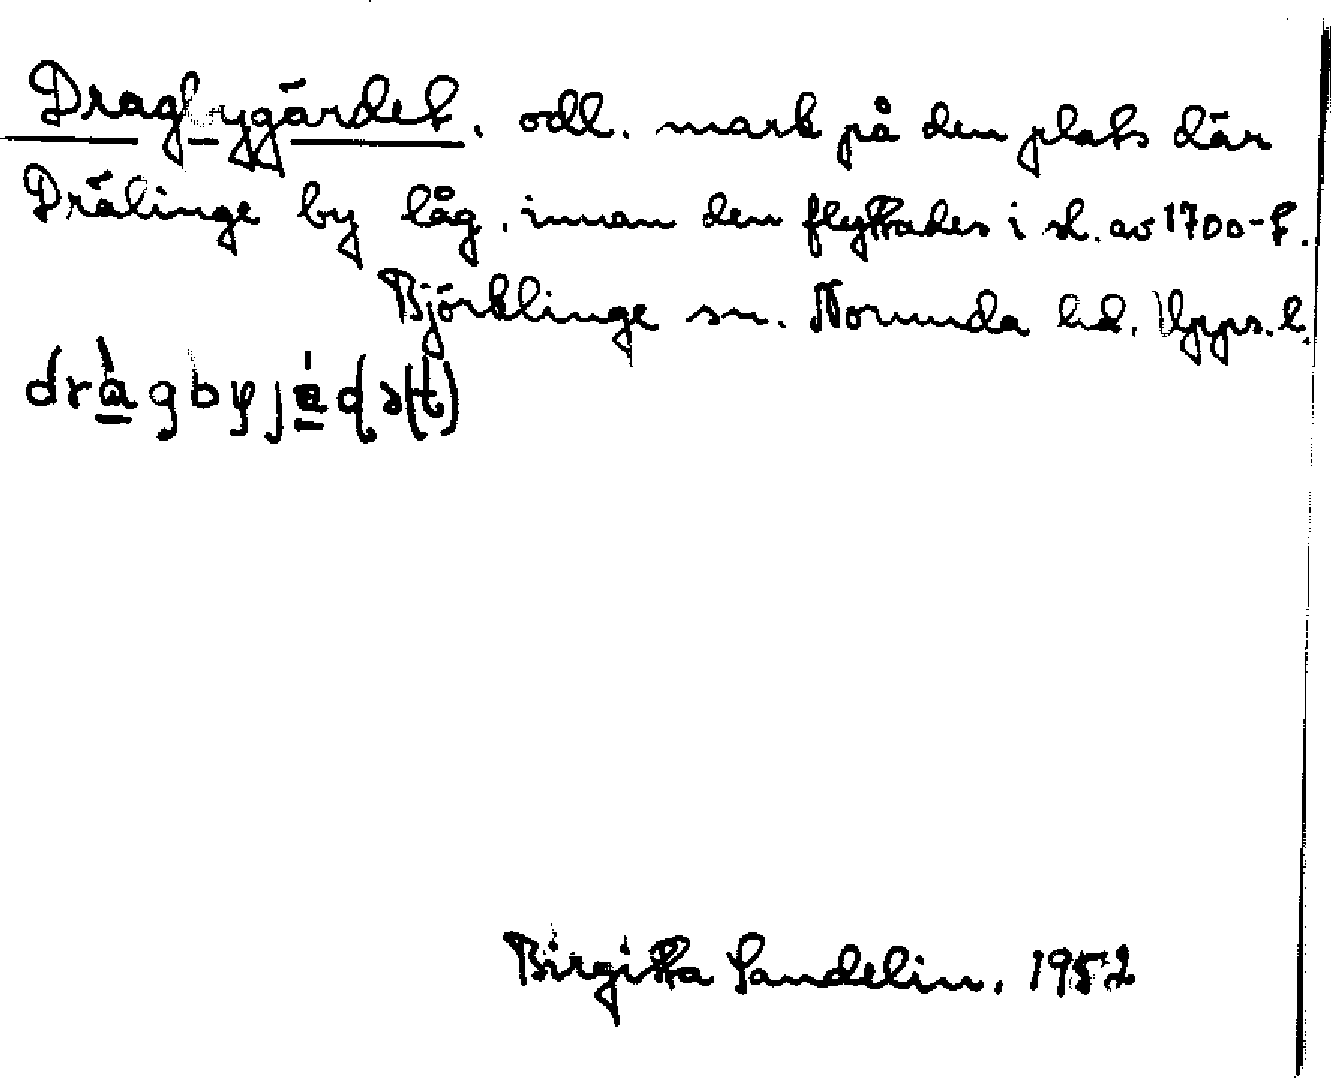 Dragbygärdet, odl. mark på den plats där
Drälinge by låg, innan den flyttades i sl. av 1700-t.
Björklinge sn. Norunda hd. Upps. l.
Birgitta Sandelin. 1952